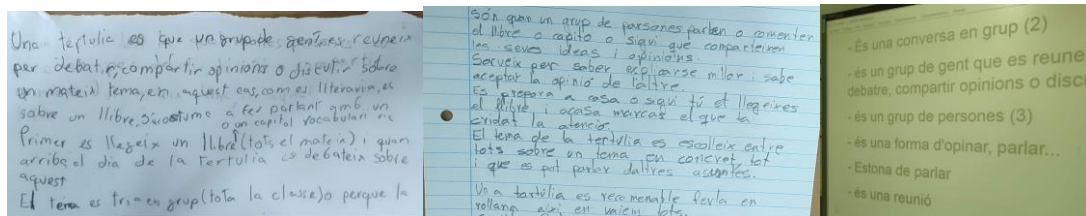 Una tertulia es que un grup de gent es reuneix
per debatre, compartir opinions o discutir sobre
un mateix tema, en aquest cas, com es lliteraria, es
sobre un llibre. S'acostuma a fer parlant amb un
o un capitol vocabulari ric
Primer es llegeix un llibre (tots el mateix) i quan
arriba el dia de la Tertulia es debateix sobre
aquest
El tema es tria en grup (tota la classe) o perque la
Són quan un grup de parsones parlen o comenten
el llibre o capito o sigui que comparteixen
les seves ideas i opinions.
Serveix per saber explicarse millor i sabe
aceptar la opinió de l'altre.
Es prepara a casa o sigui tú et llegeixes
el llibre i acasa marcas el que ta
cridat la atenció.
El tema de la tertulia es escolleix entre
tots sobre un tema en concret tot
i que es pot parlar daltres asumtes.
Una tartúlia es recomenable ferla en
rollana aixi en vaiem tots.
- És una conversa en grup (2)
- és un grup de gent que es reune
debatre, compartir opinions o disc
- és un grup de persones (3)
- és una forma d'opinar, parlar...
- Estona de parlar
- és una reunió